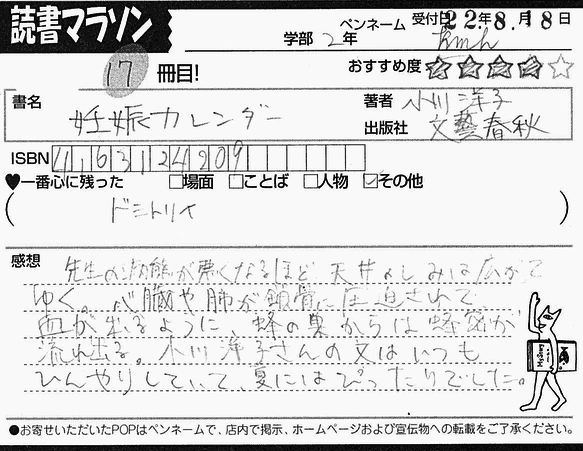 読書マラソン
学部 2年
ペンネーム kmh
受付日 22年8.月18日
17 冊目!
おすすめ度 ★★★★☆
書名 妊娠カレンダー
著者 小川洋子
出版社 文藝春秋
ISBN 4163124209
♥一番心に残った □場面 □ことば □人物 ☑その他
( ドミトリイ )
感想 先生の状態が悪くなるほど、天井のしみは広がって
ゆく。心臓や肺が鎖骨に圧迫されて
血が出るように、蜂の巣からは蜂蜜が
流れ出る。小川洋子さんの文はいつも
ひんやりしていて、夏にはぴったりでした。
●お寄せいただいたPOPはペンネームで、店内で掲示、ホームページおよび宣伝物への転載をご了承ください。